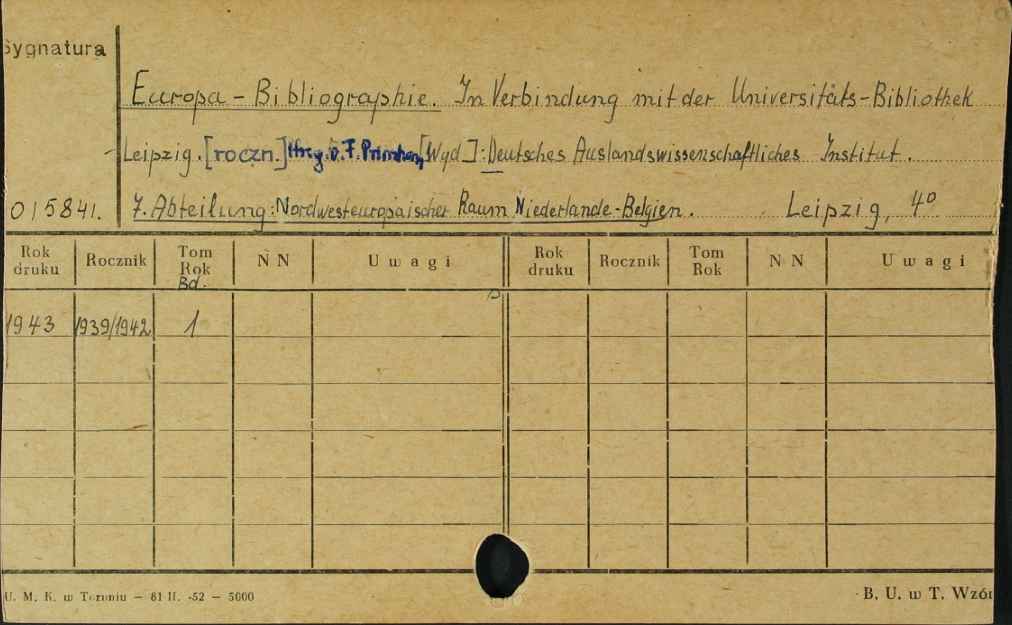 Sygnatura
Europa - Bibliographie. In Verbindung mit der Universitäts-Bibliothek
Leipzig. [roczn.] Hrsg. v. F. [Wyd]: Deutsches Auslandswissenschaftliches Institut.
015841. 7. Abteilung: Nordwesteuropäischer Raum Niederlande-Belgien. Leipzig, 4°
Rok druku Rocznik Tom Rok Bd. N N Uwagi Rok druku Rocznik Tom Rok N N Uwagi
1943 1939/1942 1
U. M. K. w Toruniu — 81 II. -52 — 5000 B. U. w T. Wzór